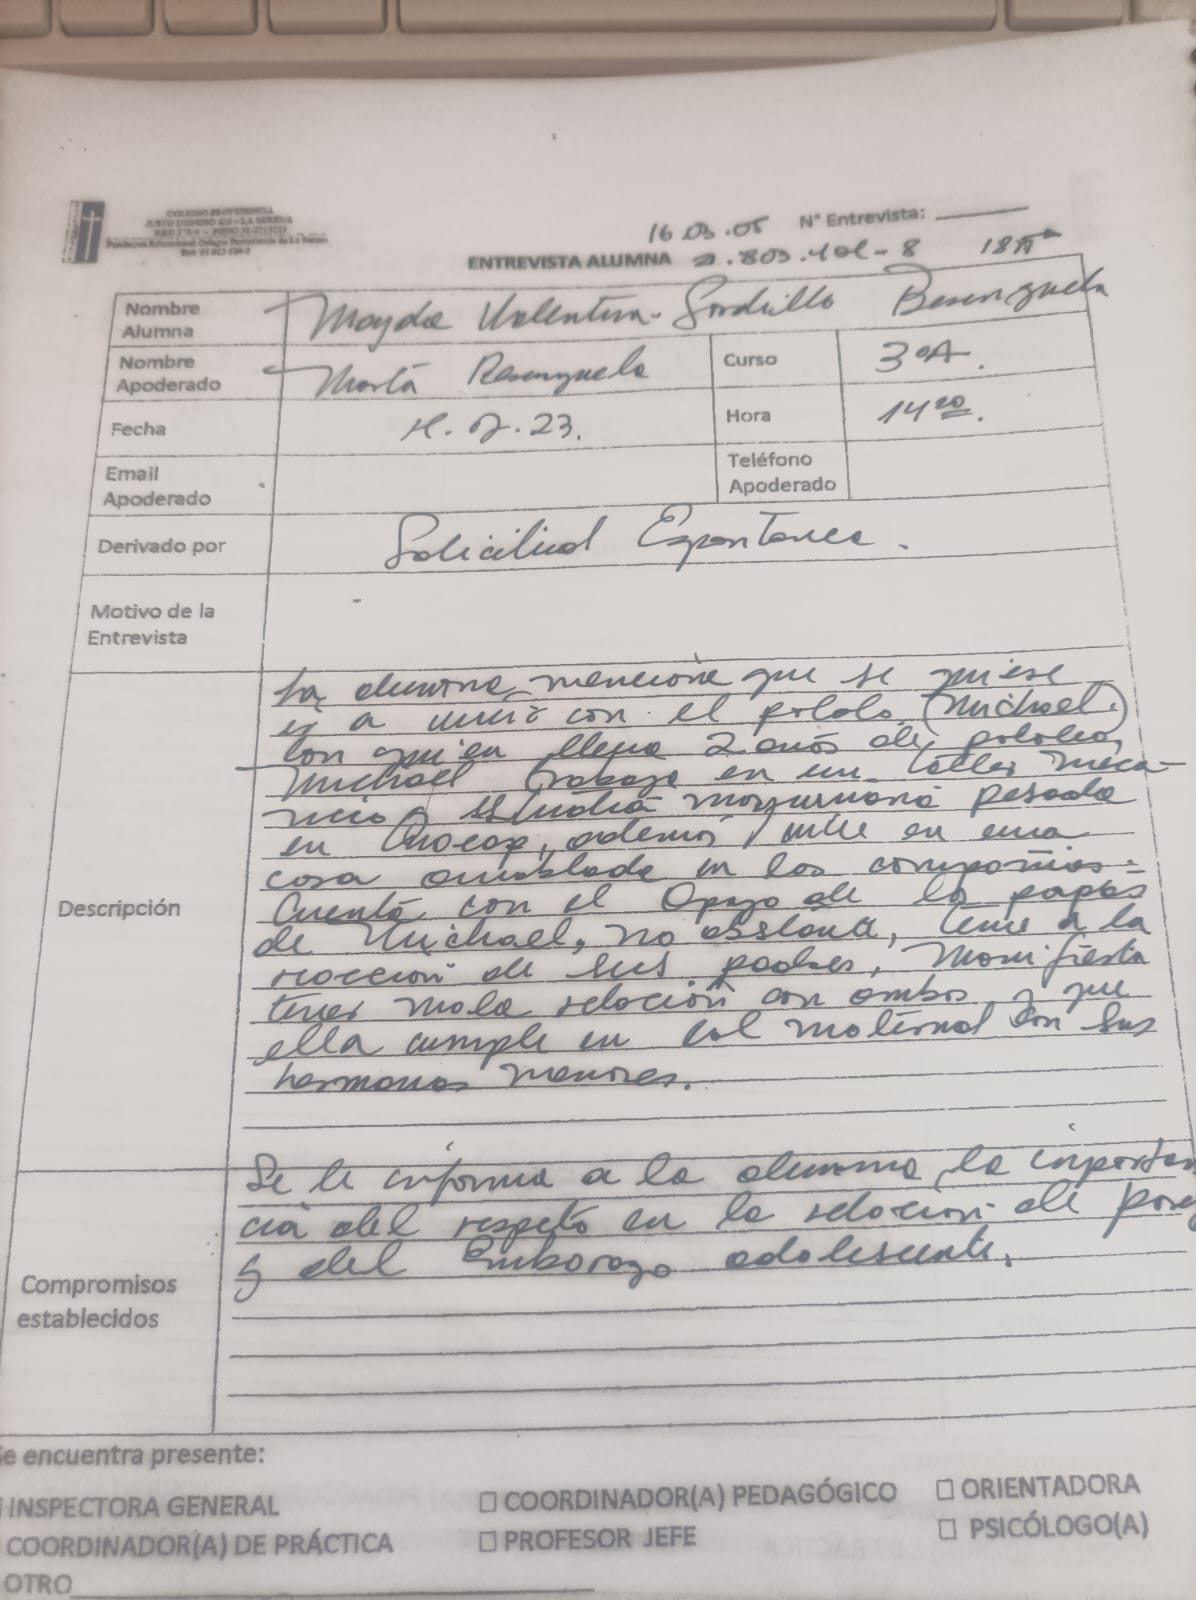 COLEGIO PROVIDENCIA
16.03.05 N° Entrevista:
ENTREVISTA ALUMNA .803.401-8 18
Nombre Alumna Valentina Gordillo
Nombre Apoderado Marta Curso 3ºA.
Fecha .23. Hora 14 20.
Email Apoderado Teléfono Apoderado
Derivado por Solicitud Espontanea.
Motivo de la Entrevista -
Descripción
La alumna menciona que se quiere
ir a vivir con el pololo (Michael)
con quien lleva 2 años de pololeo,
Michael trabaja en un taller mecá-
nico y estudia maquinaria pesada
en Inacap, además vive en una
casa amoblada en las compañías.
Cuenta con el apoyo de los papás
de Michael, no obstante, teme a la
reacción de sus padres, manifiesta
tener mala relación con ambos y que
ella cumple en rol maternal con sus
hermanos menores.
Compromisos establecidos
Se le informa a la alumna la importan
cia del respeto en la relación de
y del Embarazo adolescente.
Se encuentra presente:
INSPECTORA GENERAL ☐ COORDINADOR(A) PEDAGÓGICO ☐ ORIENTADORA
COORDINADOR(A) DE PRÁCTICA ☐ PROFESOR JEFE ☐ PSICÓLOGO(A)
OTRO